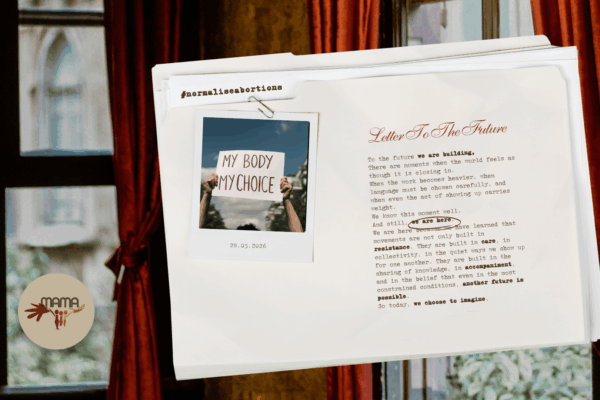 #normaliseabortions
MY BODY
MY CHOICE
28.03.2026
MAMA
Letter To The Future
To the future we are building,
There are moments when the world feels as
though it is closing in.
When the work becomes heavier, when
language must be chosen carefully, and
when even the act of showing up carries
weight.
We know this moment well.
And still, we are here.
We are here because we have learned that
movements are not only built in
resistance. They are built in care, in
collectivity, in the quiet ways we show up
for one another. They are built in the
sharing of knowledge, in accompaniment,
and in the belief that even in the most
constrained conditions, another future is
possible.
So today, we choose to imagine.